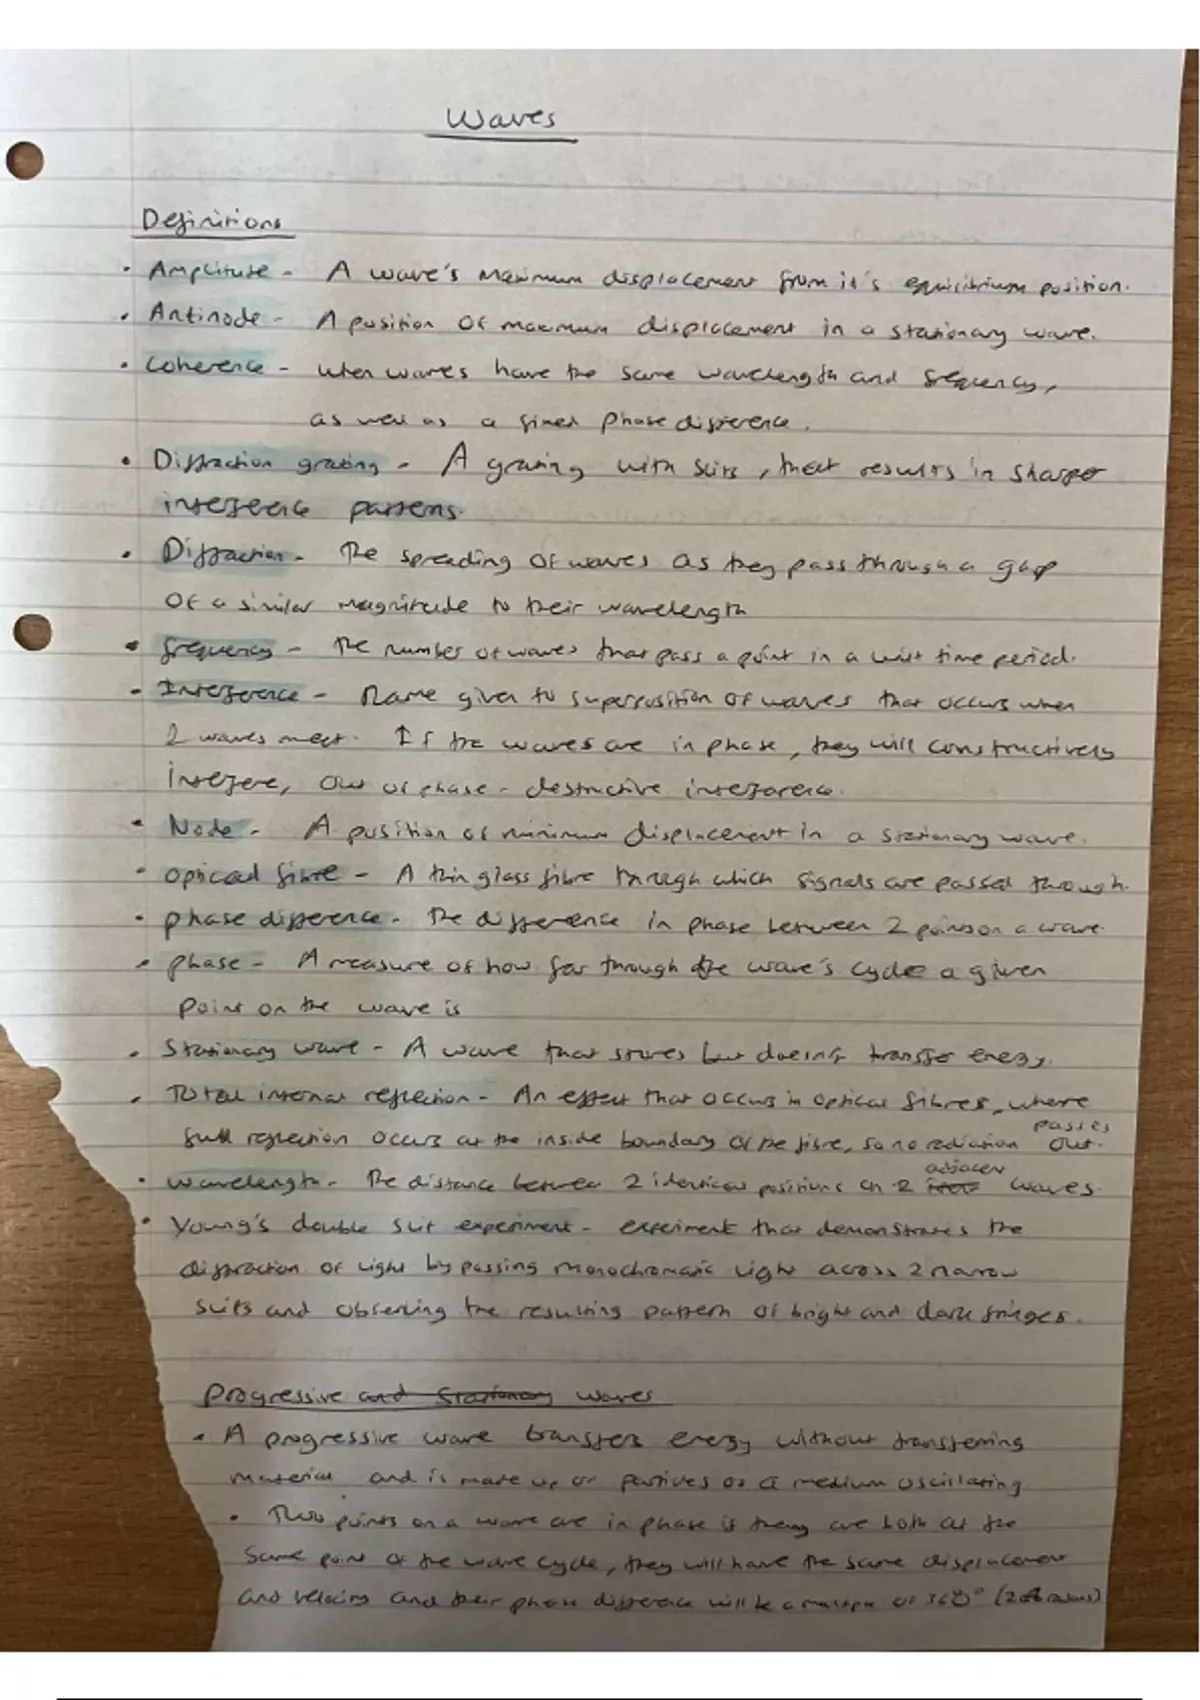 Waves
Definitions
• Amplitude - A wave's maximum displacement from it's equilibrium position.
• Antinode - A position of maximum displacement in a stationary wave.
• Coherence - when waves have the same wavelength and frequency,
as well as a fixed phase difference.
• Diffraction grating - A grating with slits, that results in sharper
interference patterns.
• Diffraction - The spreading of waves as they pass through a gap
of a similar magnitude to their wavelength
• frequency - The number of waves that pass a point in a unit time period.
• Interference - Name given to superposition of waves that occurs when
2 waves meet. If the waves are in phase, they will constructively
interfere, out of phase - destructive interference.
• Node - A position of minimum displacement in a stationary wave.
• optical fibre - A thin glass fibre through which signals are passed through.
• phase difference - The difference in phase between 2 points on a wave.
• phase - A measure of how far through the wave's cycle a given
point on the wave is
• Stationary wave - A wave that stores but doesn't transfer energy.
• Total internal reflection - An effect that occurs in optical fibres, where
full reflection occurs at the inside boundary of the fibre, so no radiation passes out.
• wavelength - The distance between 2 identical positions on 2 adjacent waves.
• Young's double slit experiment - experiment that demonstrates the
diffraction of light by passing monochromatic light across 2 narrow
slits and observing the resulting pattern of bright and dark fringes.
Progressive and stationary waves
• A progressive wave transfers energy without transferring
material and is made up of particles of a medium oscillating
• Two points on a wave are in phase if they are both at the
same point of the wave cycle, they will have the same displacement
and velocity and their phase difference will be a multiple of 360° (2π radians)